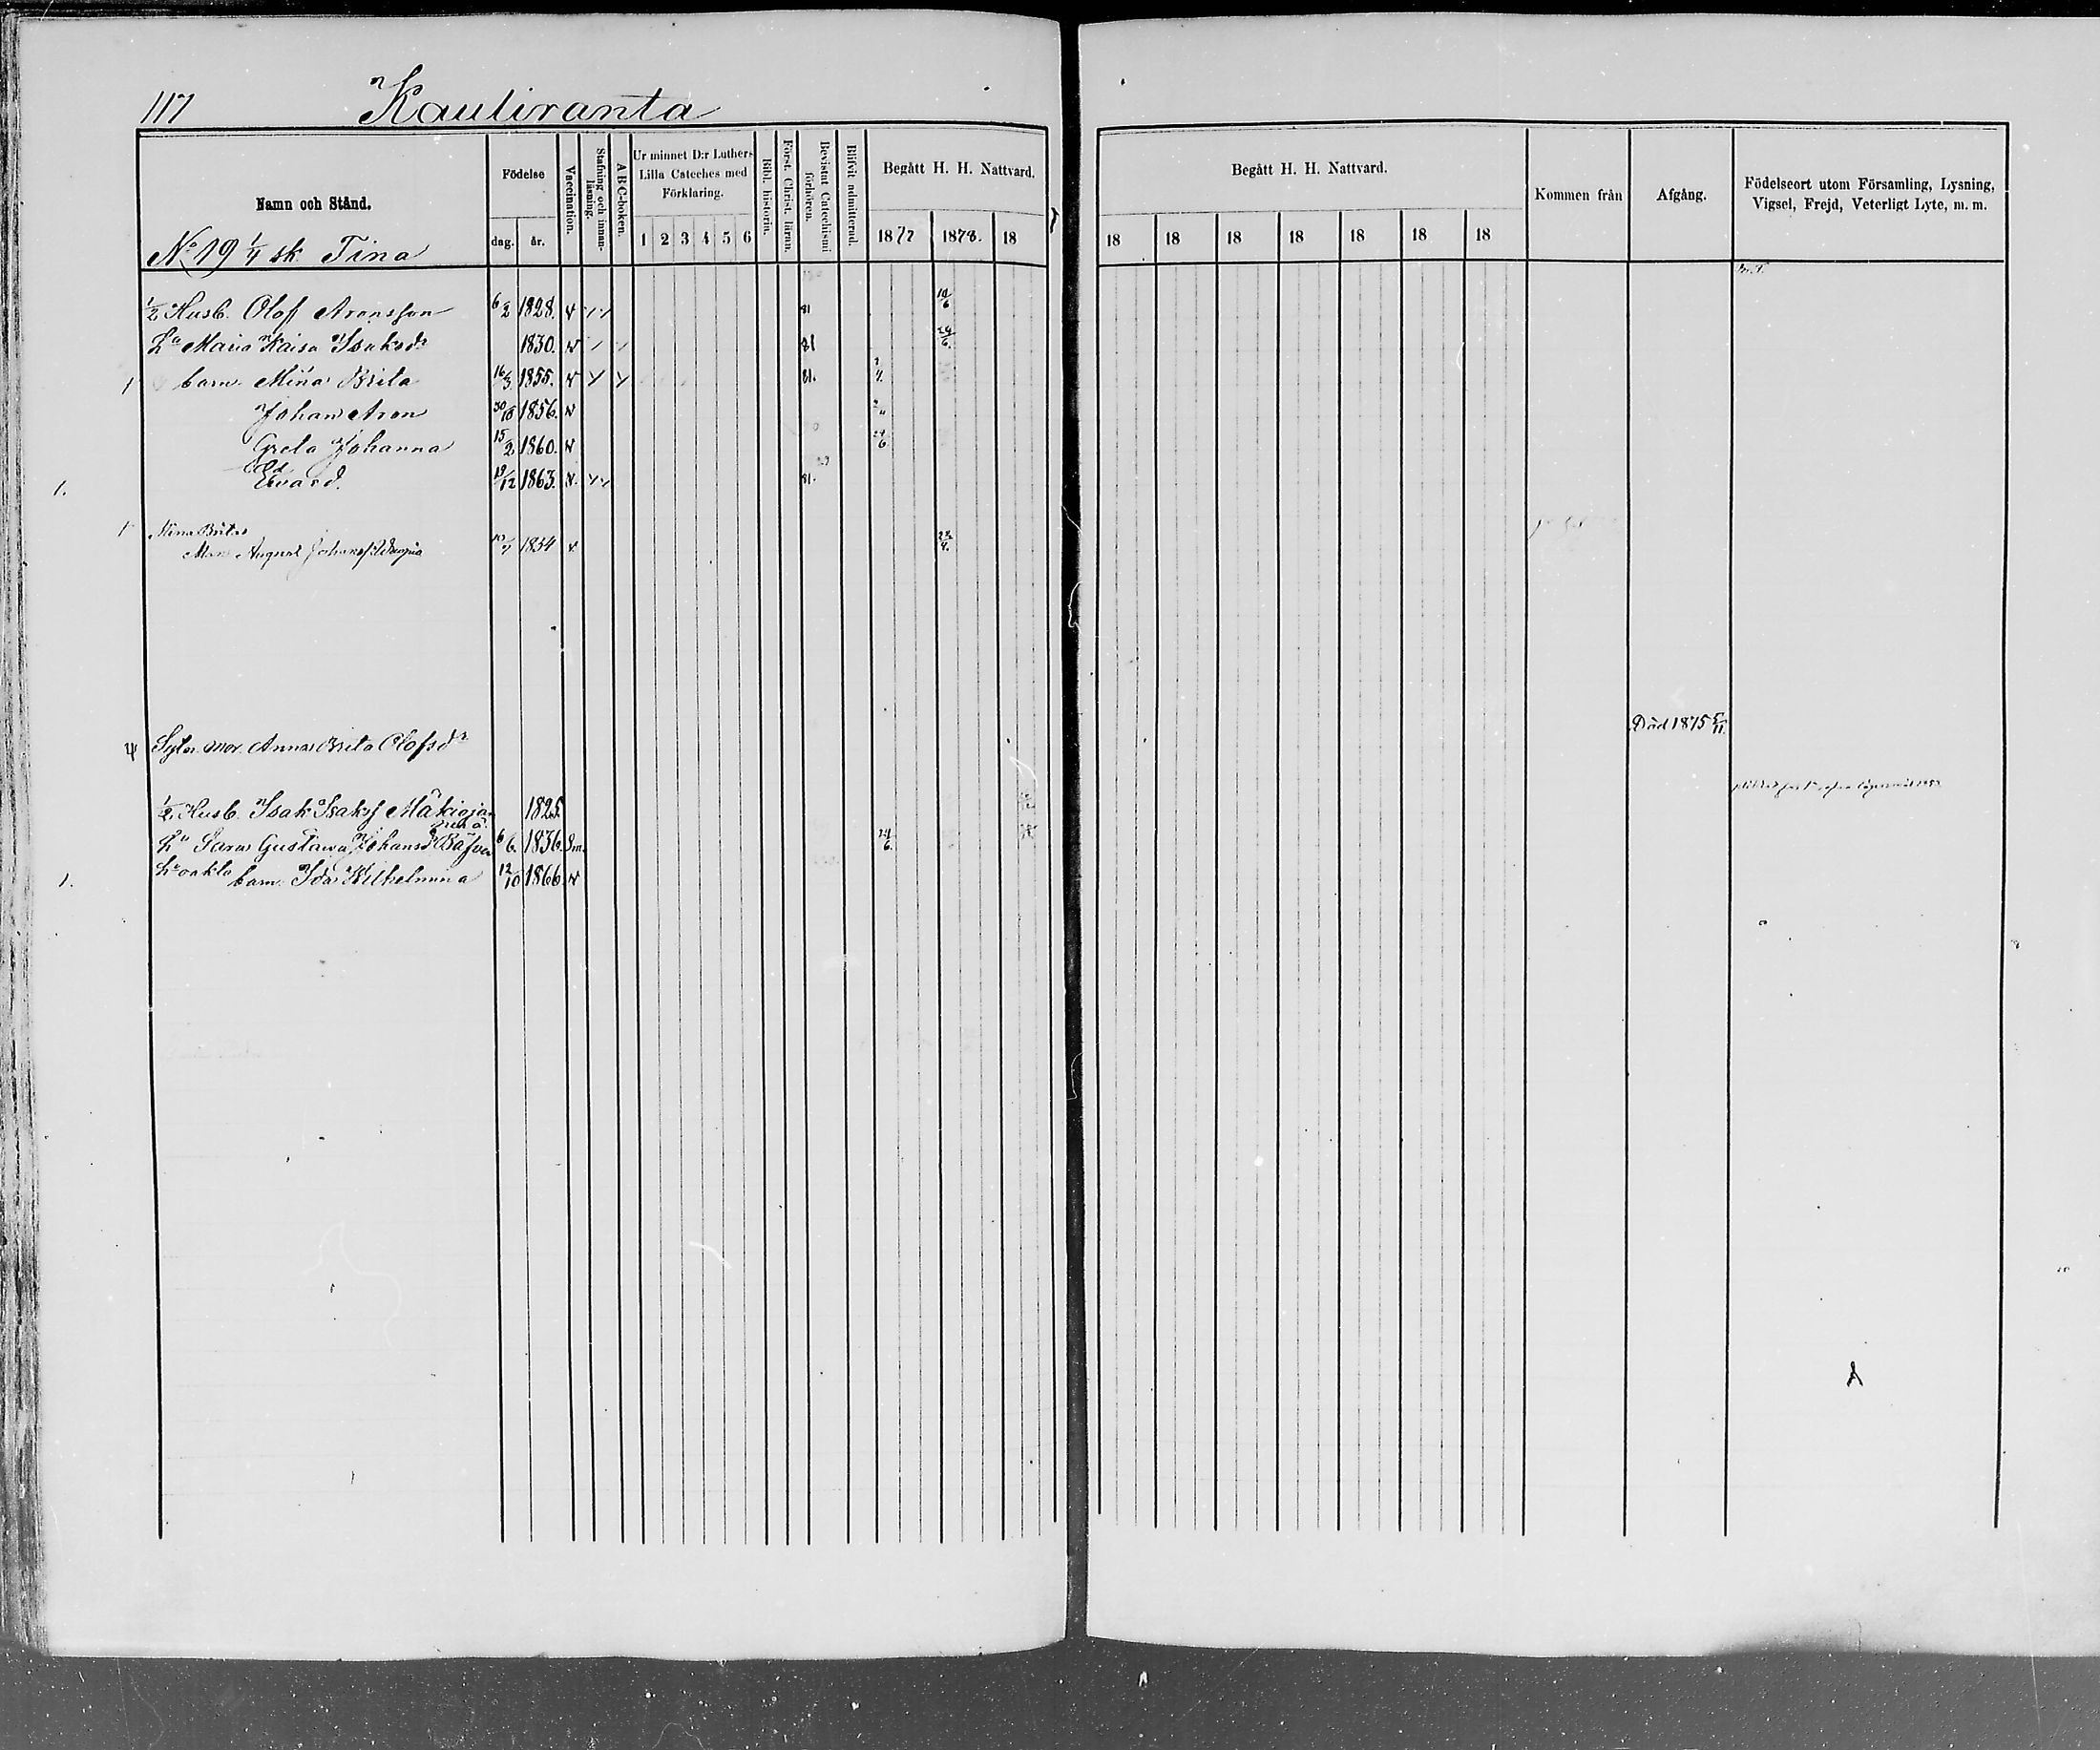 117 Kauliranta
Namn och Stånd.
Födelse
dag. år.
Vaccination.
Stafning och innanläsning.
ABC-boken.
Ur minnet D:r Luthers
Lilla Cateches med
Förklaring.
1 2 3 4 5 6
Bibl. historia.
Först. Christ. läran.
Bevistat Catechismi förhören.
Blifvit admitterad.
Begått H. H. Nattvard.
1877 1878. 18
Begått H. H. Nattvard.
18 18 18 18 18 18 18
Kommen från
Afgång.
Födelseort utom Församling, Lysning,
Vigsel, Frejd, Veterligt Lyte, m. m.
No 19 1/4 sk Tina
1/2 Husb. Olof Aronsson 6/2 1828. v 81 14/6
Hu Maria Kaisa Isaksdr 1830. v 81 24/6
1 barn Mina Brita 16/3 1855. v 81. 2/4
Johan Aron 30/10 1856. v
Greta Johanna 15/2 1860. v 24/6
Ed
1. Evard. 19/12 1863. v. 81.
1 Mina Britas
Man August Johanss 10/7 1854 v. 22/4.
Död 1875 5/11.
Sytn. mor. Anna Brita Olofsdr
1/2 Husb. Isak Isakss Mäkioja 1825.
Hu Sara Gustawa Johansdr 6/6 1836. Sm. 24/6.
1. barn Ida Wilhelmina 12/10 1866. v